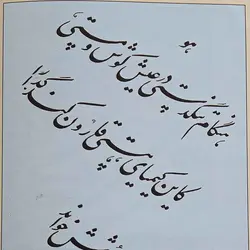 هو
هنگام تنگدستی در عیش کوش و مستی
کاین کیمیای هستی قارون کند گدا را
خواند